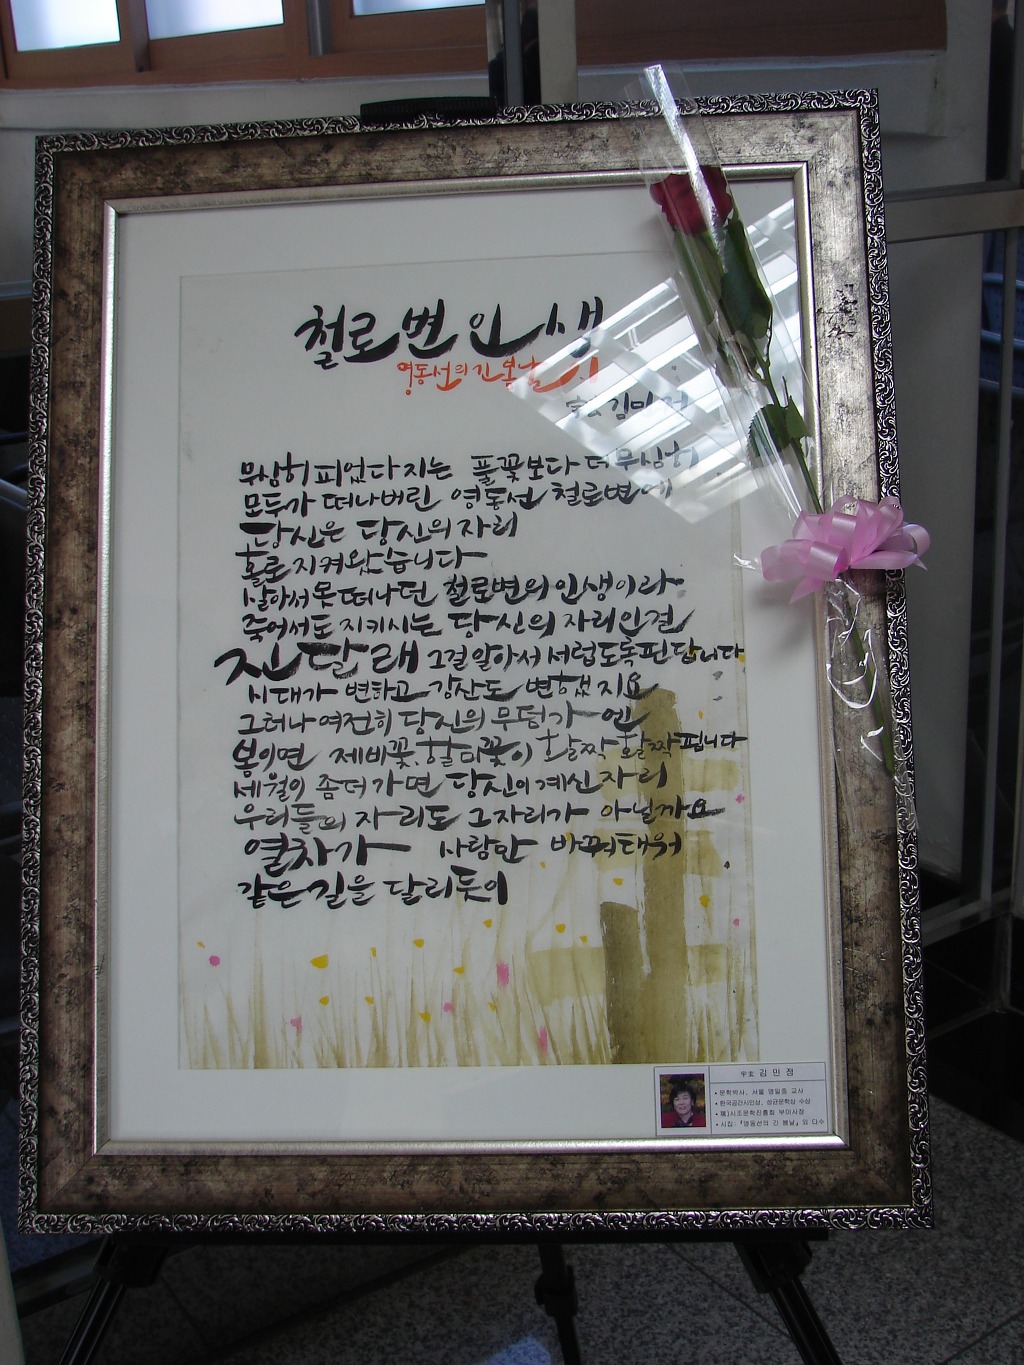 철로변 인생
영동선의 긴 봄날
김민정
무심히 피었다 지는 풀꽃보다 더 무심히
모두가 떠나버린 영동선 철로변에
당신은 당신의 자리
홀로 지켜 왔습니다
살아서 못 떠나던 철로변의 인생이라
죽어서도 지키시는 당신의 자리인걸
진달래 그걸 알아서 서럽도록 핀답니다
시대가 변하고 강산도 변했지요
그러나 여전히 당신의 무덤가엔
봄이면 제비꽃, 할미꽃이 활짝 활짝 핍니다
세월이 좀 더 가면 당신이 계신 자리
우리들의 자리도 그 자리가 아닐까요
열차가 사람만 바꿔 태워
같은 길을 달리듯이
宇玄 김민정
• 문학박사, 서울 명일중 교사
• 한국공간시인상, 성균문학상 수상
• 시조문학진흥회 부이사장
• 시집: 『영동선의 긴 봄날』 외 다수